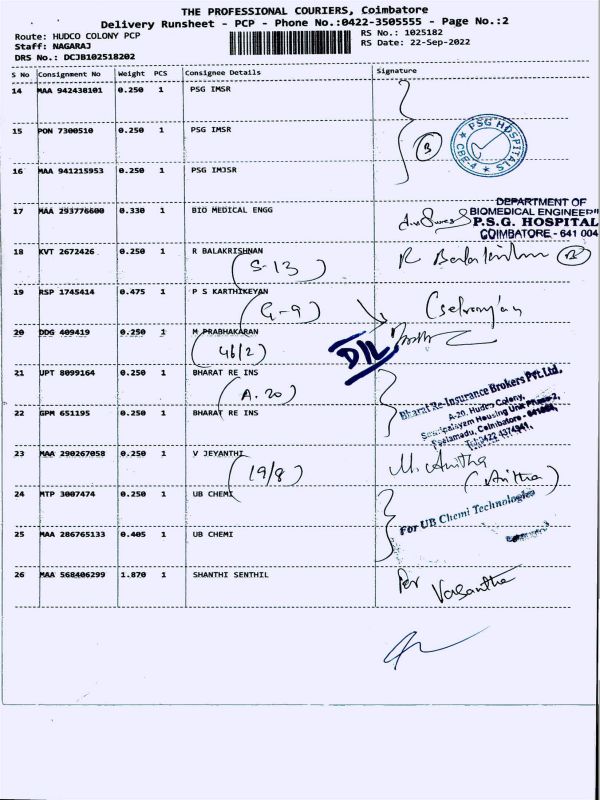 THE PROFESSIONAL COURIERS, Coimbatore
Delivery Runsheet - PCP - Phone No.:0422-3505555 - Page No.:2
Route: HUDCO COLONY PCP
RS No.: 1025182
Staff: NAGARAJ
RS Date: 22-Sep-2022
DRS No.: DCJB102518202
S No Consignment No Weight PCS Consignee Details Signature
14 MAA 942438101 0.250 1 PSG IMSR
15 PON 7300510 0.250 1 PSG IMSR
3
PSG HOSPITALS
CBE-4
16 MAA 941215953 0.250 1 PSG IMJSR
17 MAA 293776600 0.330 1 BIO MEDICAL ENGG
DEPARTMENT OF
BIOMEDICAL ENGINEER
P.S.G. HOSPITAL
COIMBATORE - 641 004
18 KVT 2672426 0.250 1 R BALAKRISHNAN
(S-13)
19 RSP 1745414 0.475 1 P S KARTHIKEYAN
(G-9)
20 DDG 409419 0.250 1 M PRABHAKARAN
(46/2)
D/L
21 UPT 8099164 0.250 1 BHARAT RE INS
(A.20)
22 GPM 651195 0.250 1 BHARAT RE INS
Bharat Re-Insurance Brokers Pvt.Ltd.
A-20, Hudco Colony,
Sowripalayam Housing Unit Phase-2,
Peelamadu, Coimbatore - 641004,
Tel:0422 4374941.
23 MAA 290267058 0.250 1 V JEYANTHI
(19/8)
M. Anitha
(Anitha)
24 MTP 3007474 0.250 1 UB CHEMI
For UB Chemi Technologies
25 MAA 286765133 0.405 1 UB CHEMI
26 MAA 568406299 1.870 1 SHANTHI SENTHIL
for Vasantha